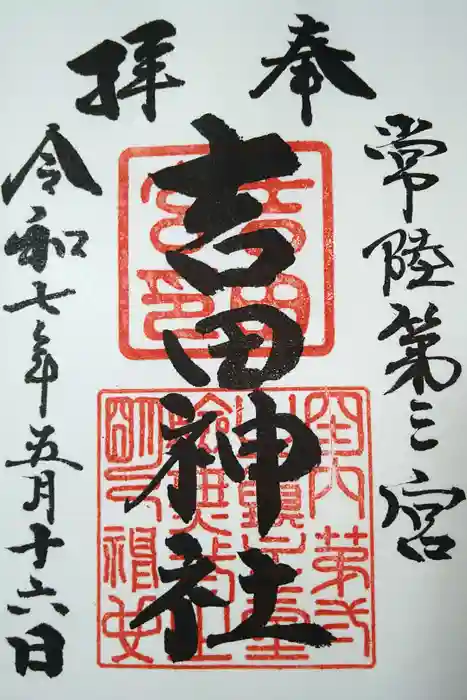 奉拝
常陸第三宮
吉田神社
令和七年五月十六日